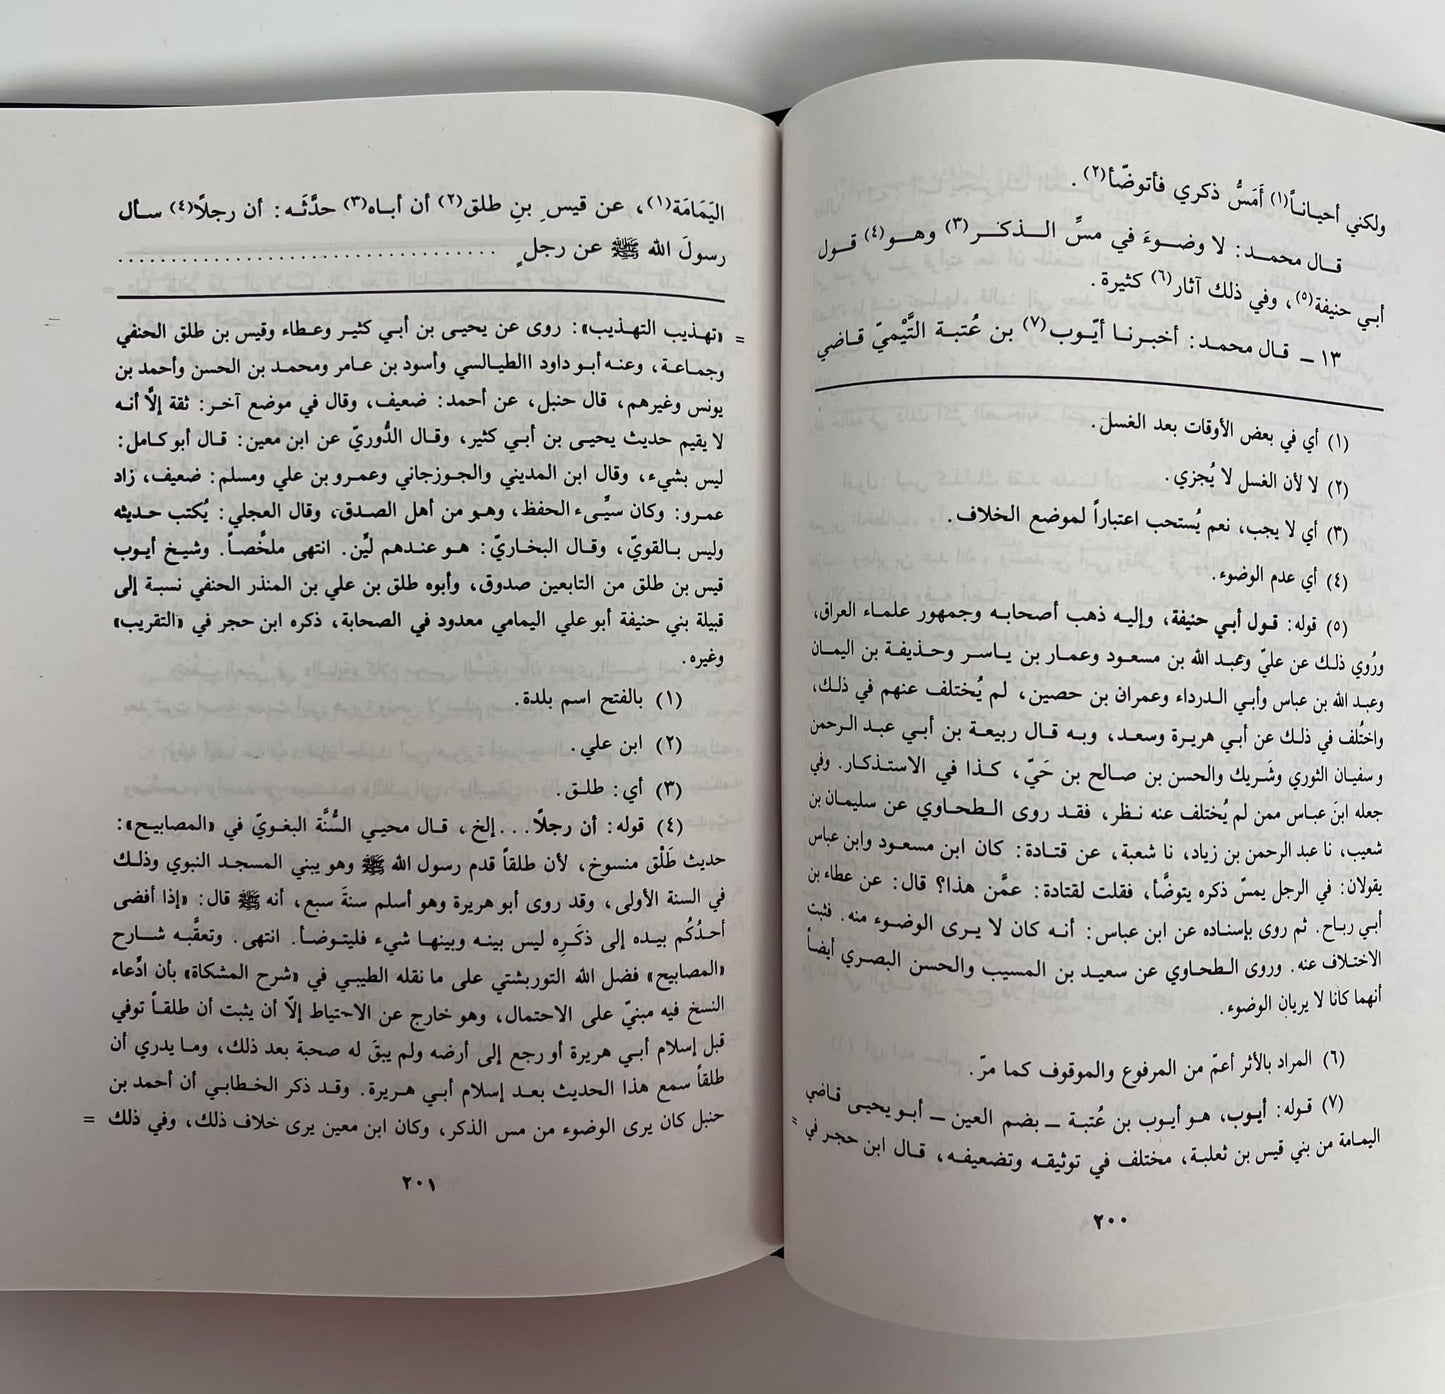 ولكني أحياناً(١) أَمَسُّ ذكري فأتوضّأ(٢) .
قال محمد: لا وضوءَ في مسِّ الذكر(٣) وهو(٤) قول
أبي حنيفة(٥)، وفي ذلك آثار(٦) كثيرة .
١٣ – قال محمد: أخبرنا أيّوب(٧) بن عُتبة التَّيْميّ قاضي
(١) أي في بعض الأوقات بعد الغسل.
(٢) لا لأن الغسل لا يُجزي.
(٣) أي لا يجب، نعم يُستحب اعتباراً لموضع الخلاف.
(٤) أي عدم الوضوء.
(٥) قوله: قول أبي حنيفة، وإليه ذهب أصحابه وجمهور علماء العراق،
ورُوي ذلك عن عليّ وعبد الله بن مسعود وعمار بن ياسر وحذيفة بن اليمان
وعبد الله بن عباس وأبي الدرداء وعمران بن حصين، لم يُختلف عنهم في ذلك،
واختُلف في ذلك عن أبي هريرة وسعد، وبه قال ربيعة بن أبي عبد الرحمن
وسفيان الثوري وشَريك والحسن بن صالح بن حَيّ، كذا في الاستذكار. وفي
جعله ابنَ عباس ممن لم يُختلف عنه نظر، فقد روى الطحاوي عن سليمان بن
شعيب، نا عبد الرحمن بن زياد، نا شعبة، عن قتادة: كان ابن مسعود وابن عباس
يقولان: في الرجل يمسّ ذكره يتوضّأ، فقلت لقتادة: عمَّن هذا؟ قال: عن عطاء بن
أبي رباح. ثم روى بإسناده عن ابن عباس: أنه كان لا يرى الوضوء منه. فثبت
الاختلاف عنه. وروى الطحاوي عن سعيد بن المسيب والحسن البصري أيضاً
أنهما كانا لا يريان الوضوء.
(٦) المراد بالأثر أعمّ من المرفوع والموقوف كما مرّ.
(٧) قوله: أيوب، هو أيوب بن عُتبة – بضم العين – أبو يحيى قاضي
اليمامة من بني قيس بن ثعلبة، مختلف في توثيقه وتضعيفه، قال ابن حجر في =
٢٠٠
اليَمَامَة(١)، عن قيسِ بنِ طلق(٢) أن أباه(٣) حدَّثَه: أن رجلًا(٤) سأل
رسولَ الله ﷺ عن رجلٍ ..................................
= «تهذيب التهذيب»: روى عن يحيى بن أبي كثير وعطاء وقيس بن طلق الحنفي
وجماعة، وعنه أبو داود االطيالسي وأسود بن عامر ومحمد بن الحسن وأحمد بن
يونس وغيرهم، قال حنبل، عن أحمد: ضعيف، وقال في موضع آخر: ثقة إلّا أنه
لا يقيم حديث يحيى بن أبي كثير، وقال الدُّوريّ عن ابن معين: قال أبو كامل:
ليس بشيء، وقال ابن المديني والجوزجاني وعمرو بن علي ومسلم: ضعيف، زاد
عمرو: وكان سيِّىء الحفظ، وهو من أهل الصدق، وقال العجلي: يُكتب حديثه
وليس بالقويّ، وقال البخاريّ: هو عندهم ليِّن. انتهى ملخَّصاً. وشيخ أيوب
قيس بن طلق من التابعين صدوق، وأبوه طلق بن علي بن المنذر الحنفي نسبة إلى
قبيلة بني حنيفة أبو علي اليمامي معدود في الصحابة، ذكره ابن حجر في «التقريب»
وغيره.
(١) بالفتح اسم بلدة.
(٢) ابن علي.
(٣) أي: طلق.
(٤) قوله: أن رجلًا... إلخ، قال محيي السُّنَّة البغويّ في «المصابيح»:
حديث طَلْق منسوخ، لأن طلقاً قدم رسول الله ﷺ وهو يبني المسجد النبوي وذلك
في السنة الأولى، وقد روى أبو هريرة وهو أسلم سنةَ سبع، أنه ﷺ قال: «إذا أفضى
أحدُكُم بيده إلى ذكَرِه ليس بينه وبينها شيء فليتوضأ. انتهى. وتعقَّبه شارح
«المصابيح» فضل الله التوربشتي على ما نقله الطيبي في «شرح المشكاة» بأن ادِّعاء
النسخ فيه مبنيّ على الاحتمال، وهو خارج عن الاحتياط إلّا أن يثبت أن طلقاً توفي
قبل إسلام أبي هريرة أو رجع إلى أرضه ولم يبقَ له صحبة بعد ذلك، وما يدري أن
طلقاً سمع هذا الحديث بعد إسلام أبي هريرة. وقد ذكر الخطابي أن أحمد بن
حنبل كان يرى الوضوء من مس الذكر، وكان ابن معين يرى خلاف ذلك، وفي ذلك =
٢٠١